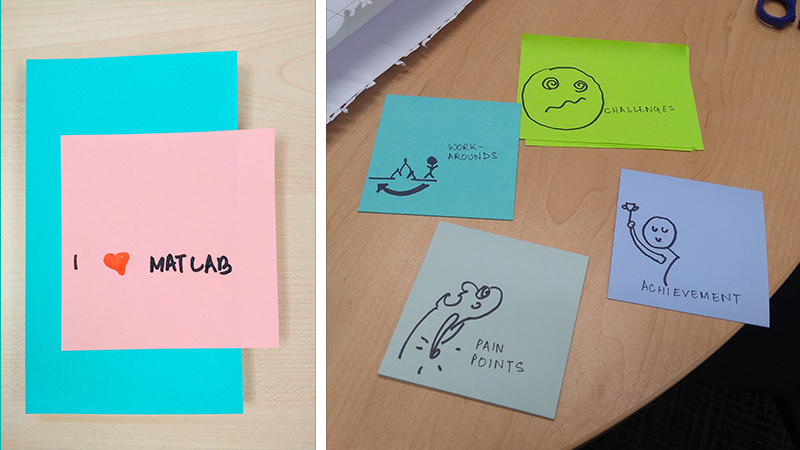 I ❤ MATLAB
CHALLENGES
WORK-
AROUNDS
ACHIEVEMENT
PAIN
POINTS